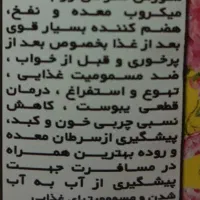 میکروب معده و نفخ،
هضم کننده بسیار قوی
بعد از غذا بخصوص بعد از
پرخوری و قبل از خواب ،
ضد مسمومیت غذایی ،
تهوع و استفراغ ، درمان
قطعی یبوست ، کاهش
نسبی چربی خون و کبد،
پیشگیری ازسرطان معده
و روده بهترین همراه
در مسافرت جهت
پیشگیری از آب به آب
شدن و مسمومیتهای غذایی